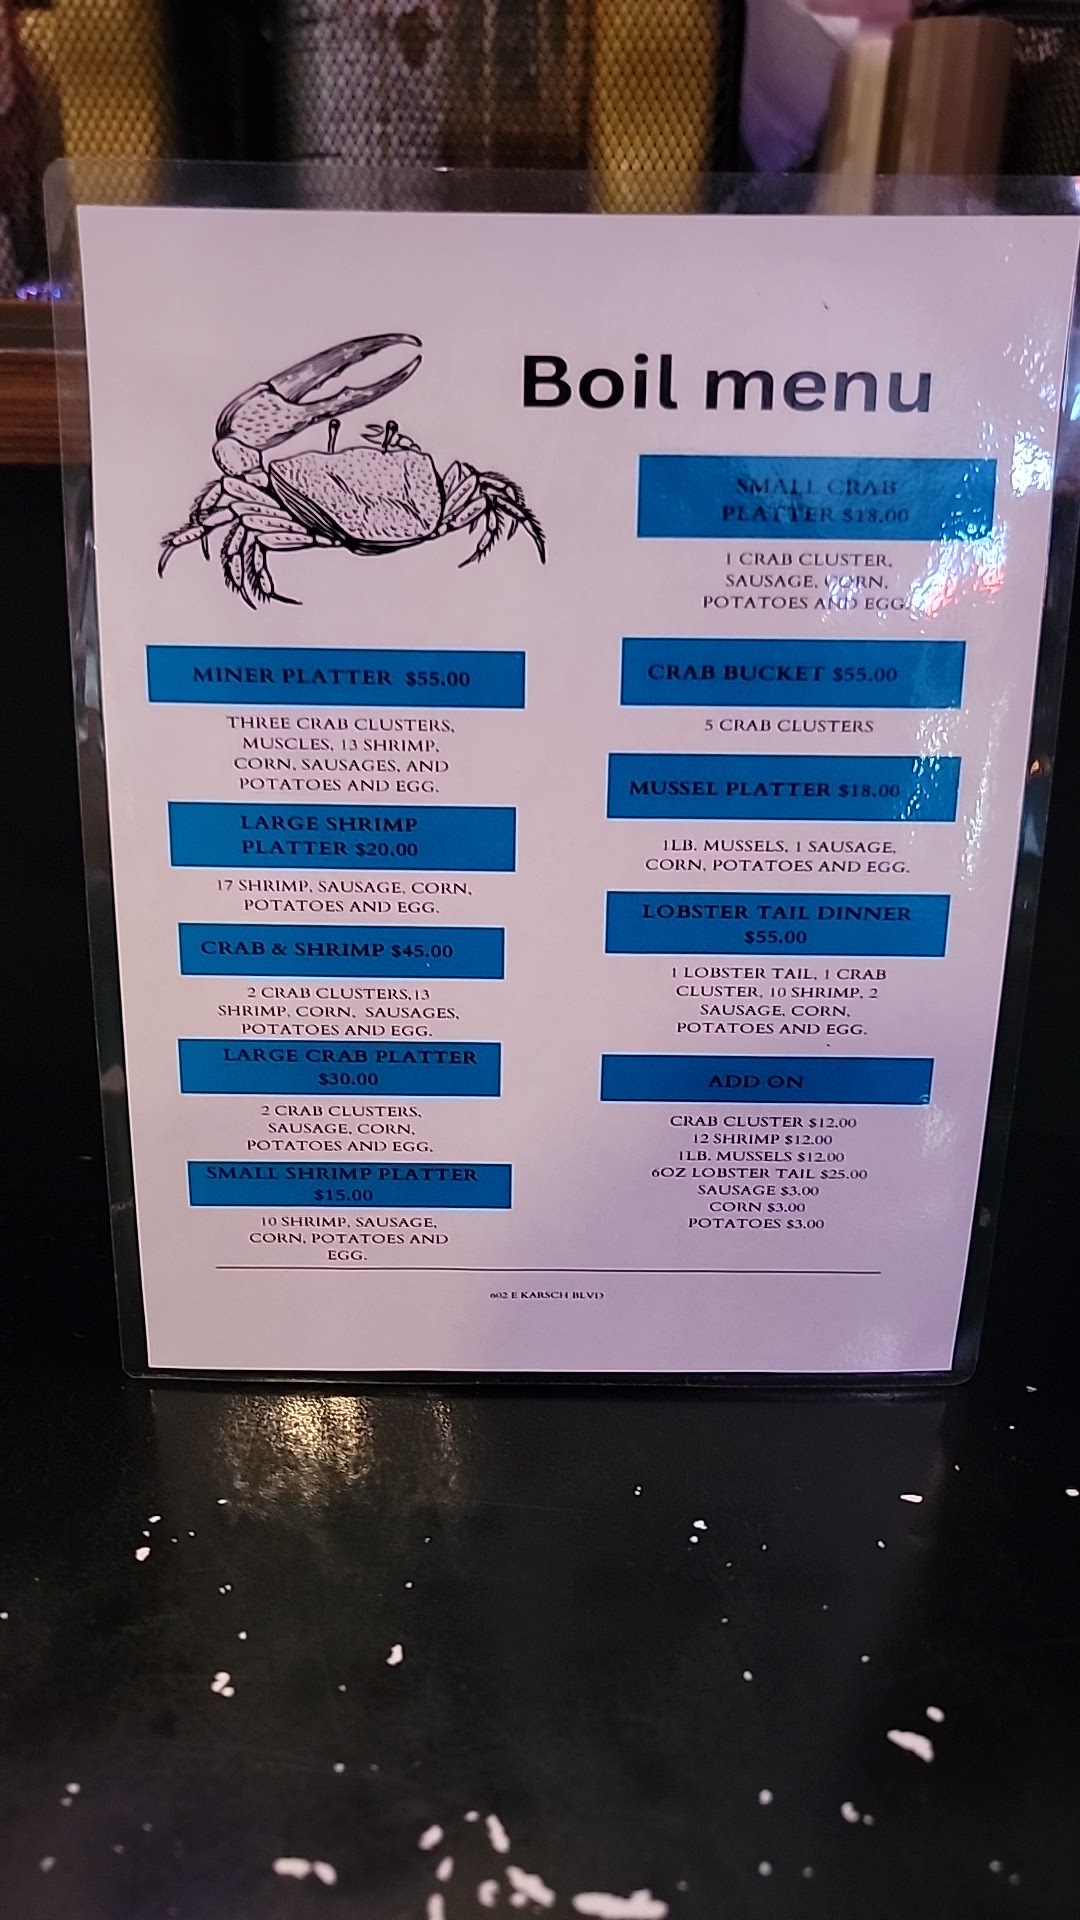 Boil menu
SMALL CRAB
PLATTER $18.00
1 CRAB CLUSTER,
SAUSAGE, CORN,
POTATOES AND EGG.
MINER PLATTER $55.00
THREE CRAB CLUSTERS,
MUSCLES, 13 SHRIMP,
CORN, SAUSAGES, AND
POTATOES AND EGG.
LARGE SHRIMP
PLATTER $20.00
17 SHRIMP, SAUSAGE, CORN,
POTATOES AND EGG.
CRAB & SHRIMP $45.00
2 CRAB CLUSTERS,13
SHRIMP, CORN, SAUSAGES,
POTATOES AND EGG.
LARGE CRAB PLATTER
$30.00
2 CRAB CLUSTERS,
SAUSAGE, CORN,
POTATOES AND EGG.
SMALL SHRIMP PLATTER
$15.00
10 SHRIMP, SAUSAGE,
CORN, POTATOES AND
EGG.
CRAB BUCKET $55.00
5 CRAB CLUSTERS
MUSSEL PLATTER $18.00
1LB. MUSSELS, 1 SAUSAGE,
CORN, POTATOES AND EGG.
LOBSTER TAIL DINNER
$55.00
1 LOBSTER TAIL, 1 CRAB
CLUSTER, 10 SHRIMP, 2
SAUSAGE, CORN,
POTATOES AND EGG.
ADD ON
CRAB CLUSTER $12.00
12 SHRIMP $12.00
1LB. MUSSELS $12.00
6OZ LOBSTER TAIL $25.00
SAUSAGE $3.00
CORN $3.00
POTATOES $3.00
602 E KARSCH BLVD